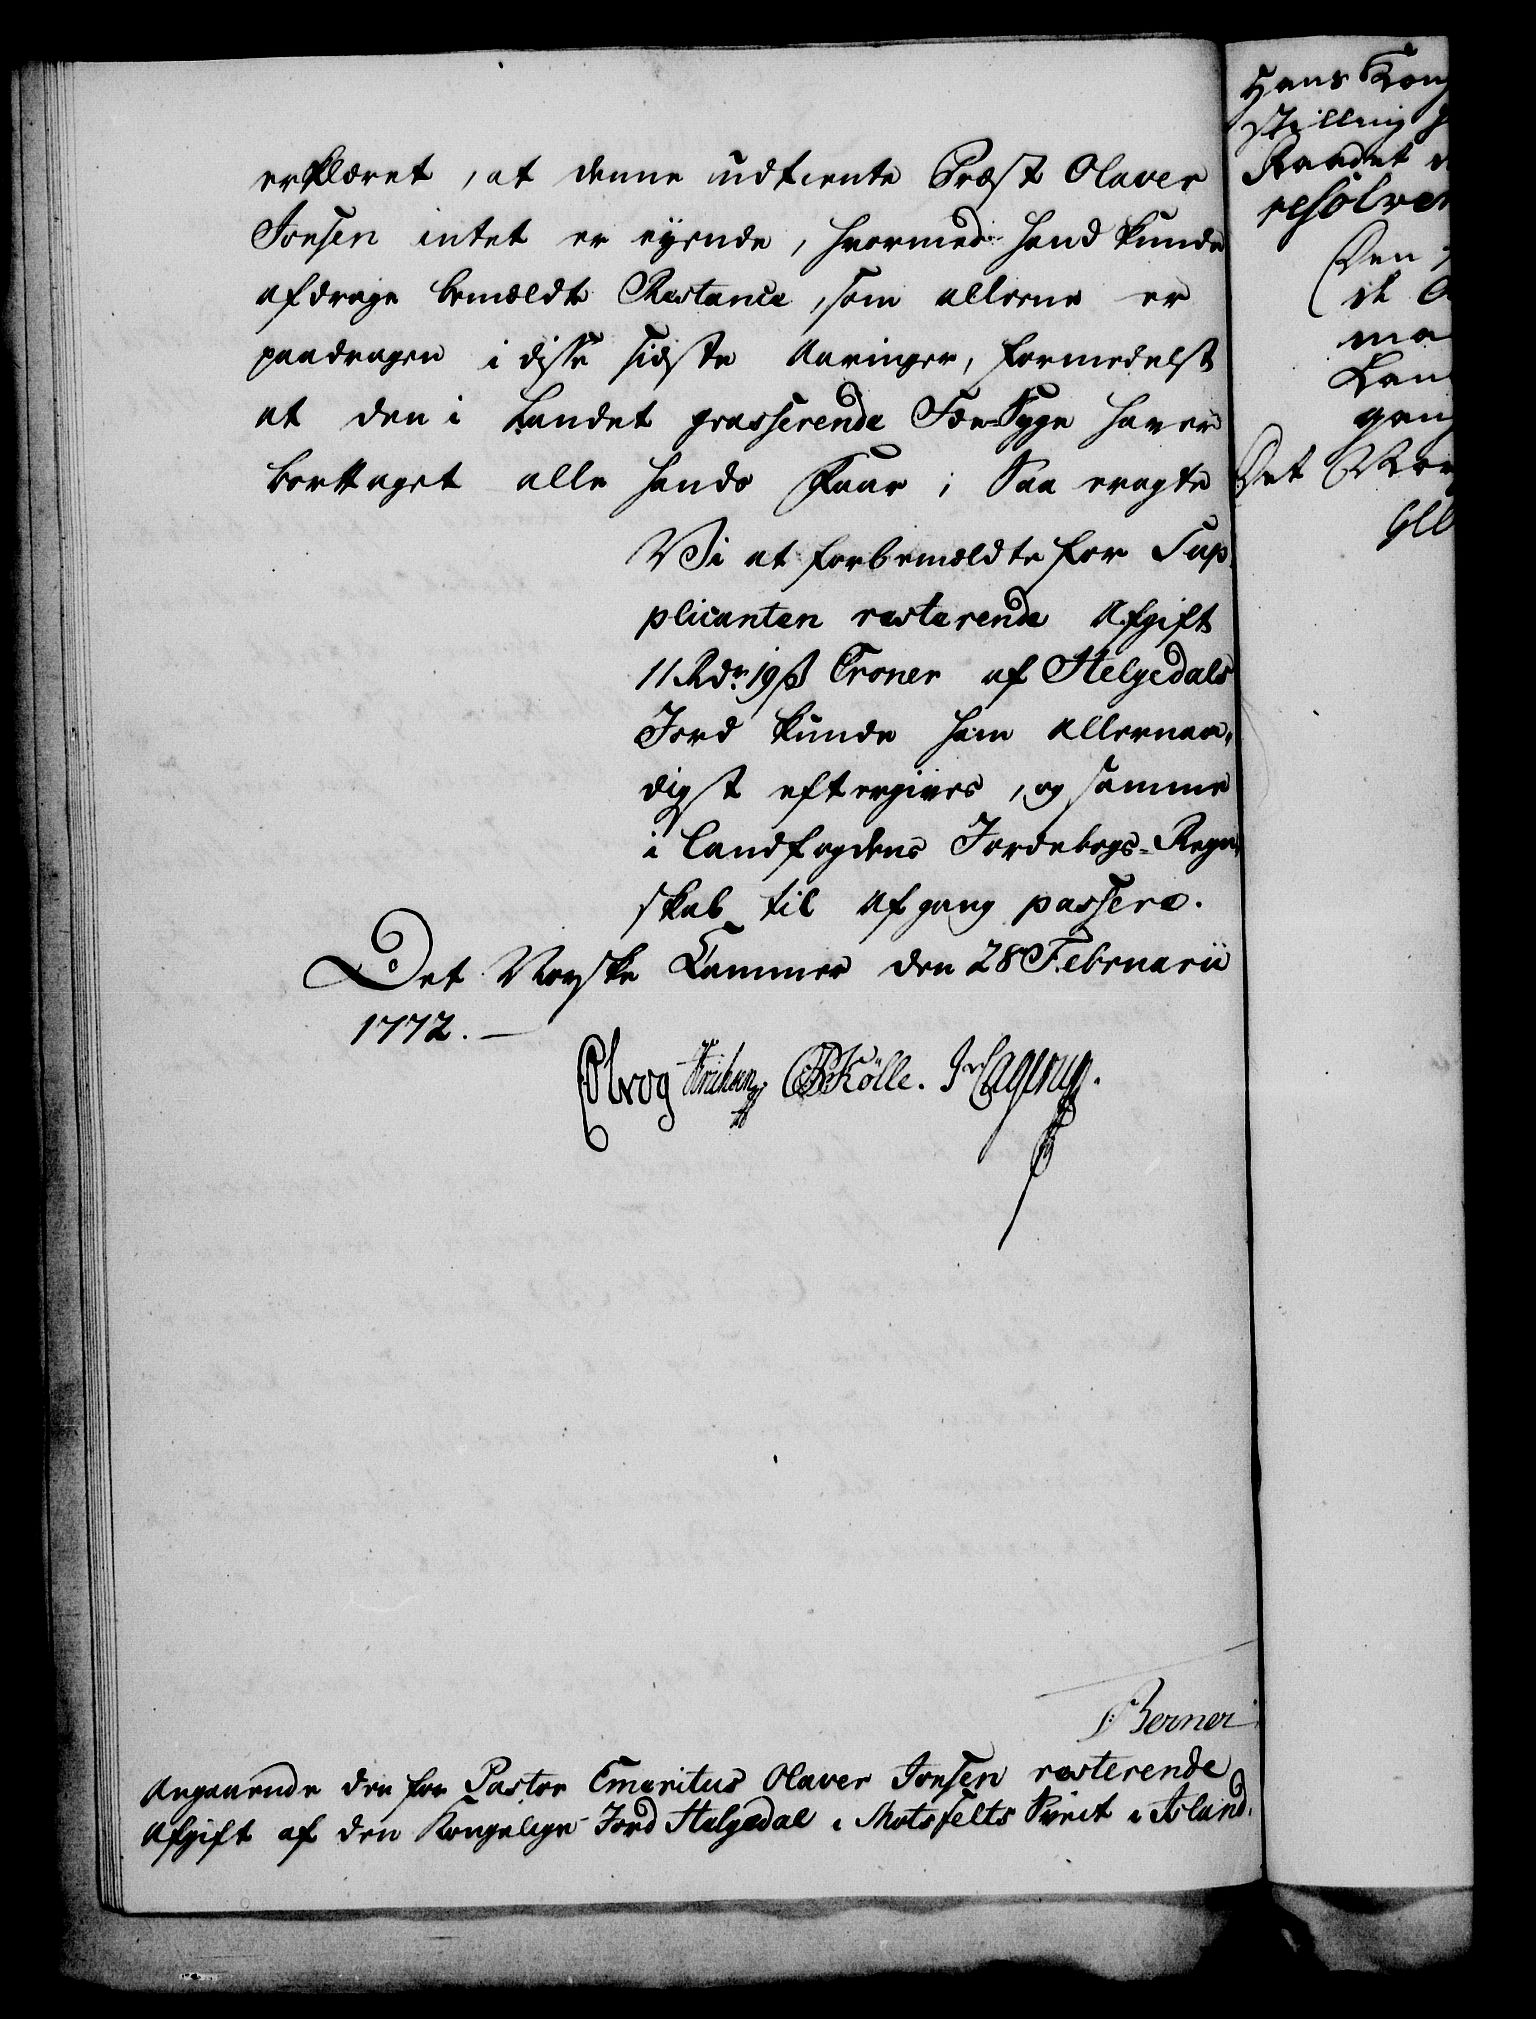 erklæret, at denne udtiente Præst Olaver
Jonsen intet er eyende, hvormed hand kunde
afdrage bemældte Restance, som alleene er
paadragen i disse sidste Aaringer, formedelst
at den i Landet grasserende Fæe-Syge haver
borttaget alle hands Faar; Saa eragte
Vi at forbemældte for Sup-
plicanten resterende Afgift
11 Rdr. 19 ß Croner af Helgedals
Jord kunde ham allernaa-
digst eftergives, og samme
i Landfogdens Jordebogs-Regn-
skab til Afgang passere.
Det Norske Kammer den 28 Februarii
1772. —
Kölle. Lagerup.
Berner
Angaaende den for Pastor Emeritus Olaver Jonsen resterende
Afgift af den Kongelige Jord Helgedal i Mosfells Syrit i Island.
Hans Kong
stilling
Raadet
resolver
Den
Lan
gang
Det Nor